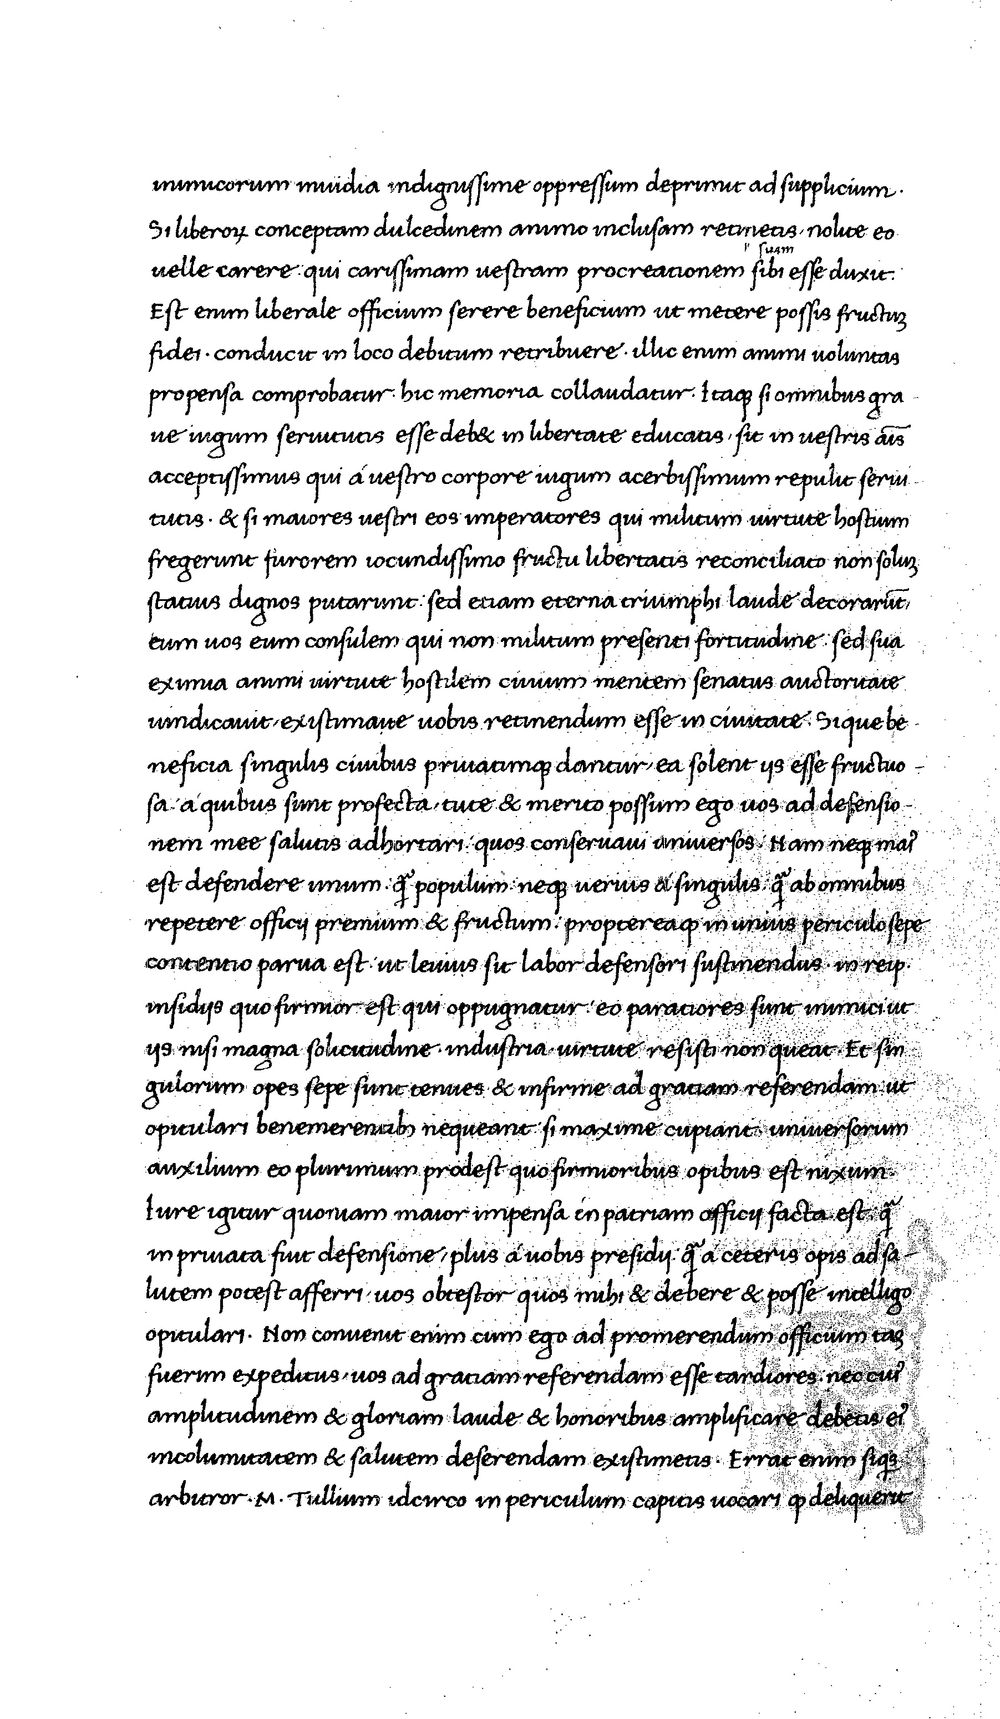 inimicorum inuidia indignissime oppressum deprimit ad supplicium.
Si liberoꝝ conceptam dulcedinem animo inclusam retinetis, nolite eo
suam
uelle carere: qui carissimam uestram procreationem sibi esse duxit.
Est enim liberale officium serere beneficium ut metere possis fructuꝫ
fidei. conducit in loco debitum retribuere. illic enim animi uoluntas
propensa comprobatur. hic memoria collaudatur. Itaqꝫ si omnibus gra-
ue iugum seruitutis esse deb& in libertate educatis, sit in uestris aīs
acceptissimus qui á uestro corpore iugum acerbissimum repulit serui-
tutis. & si maiores uestri eos imperatores qui militum uirtute hostium
fregerunt furorem iocundissimo fructu libertatis reconciliato non soluꝫ
status dignos putarunt: sed etiam eterna triumphi laude decorarūt,
eum uos eum consulem qui non militum presenti fortitudine: sed sua
eximia animi uirtute hostilem ciuium mentem senatus auctoritate
uindicauit, existimate uobis retinendum esse in ciuitate. Si que be-
neficia singulis ciuibus priuatimqꝫ dantur, ea solent iis esse fructuo-
sa á quibus sunt profecta, tute & merito possum ego uos ad defensio-
nem mee salutis adhortari: quos conseruaui uniuersos. Nam neqꝫ maĩ
est defendere unum: q̃ populum: neqꝫ uerius a singulis: q̃ ab omnibus
repetere officij premium & fructum: proptereaꝙ in unius periculo sepe
contentio parua est: ut leuius sit labor defensori sustinendus. in reip.
insidijs quo firmior est qui oppugnatur: eo paratiores sunt inimici ut
ijs nisi magna solicitudine. industria uirtute resisti non queat. Et sin
gulorum opes sepe sunt tenues & infirme ad gratiam referendam: ut
opitulari benemerentibꝫ nequeant: si maxime cupiant. uniuersorum
auxilium eo plurimum prodest quo firmioribus opibus est nixum.
Iure igitur quoniam maior impensa in patriam officij facta est: q̃
in priuata fuit defensione, plus á uobis presidij: q̃ á ceteris opis ad sa-
lutem potest afferri, uos obtestor quos mihi & debere & posse intelligo
opitulari. Non conuenit enim cum ego ad promerendum officium taꝫ
fuerim expeditus, uos ad gratiam referendam esse tardiores. nec cuĩ
amplitudinem & gloriam laude & honoribus amplificare debetis eĩ
incolumitatem & salutem deserendam existimetis. Errat enim siqs
arbitror. M. Tullium idcirco in periculum capitis uocari ꝙ deliquerit